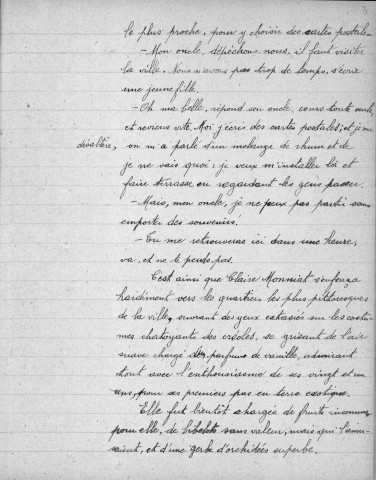 le plus proche, pour y choisir des cartes postales.
- Mon oncle, dépêchons-nous, il faut visiter
la ville. Nous n'avons pas trop de temps, s'écrie
une jeune fille.
- Oh ma belle, répond son oncle, cours toute seule,
et reviens vite. Moi j'écris des cartes postales, et je me
désaltère, on m'a parlé d'un mélange de rhum et de
je ne sais quoi; je veux m'installer là et
faire terrasse en regardant les gens passer.
- Mais, mon oncle, je ne peux pas partir sans
emporter des souvenirs.
- Tu me retrouveras ici dans une heure,
va, et ne te perds pas.
C'est ainsi que Claire Monniot s'enfonça
hardiment vers les quartiers les plus pittoresques
de la ville, ouvrant des yeux extasiés sur les costu-
mes chatoyants des créoles, se grisant de l'air
suave chargé de parfums de vanille, admirant
tout avec l'enthousiasme de ses vingt et un
ans, pour ses premiers pas en terre exotique.
Elle fut bientôt chargée de fruits inconnus
pour elle, de bibelots sans valeur, mais qui l'amu-
saient, et d'une gerbe d'orchidées superbe.